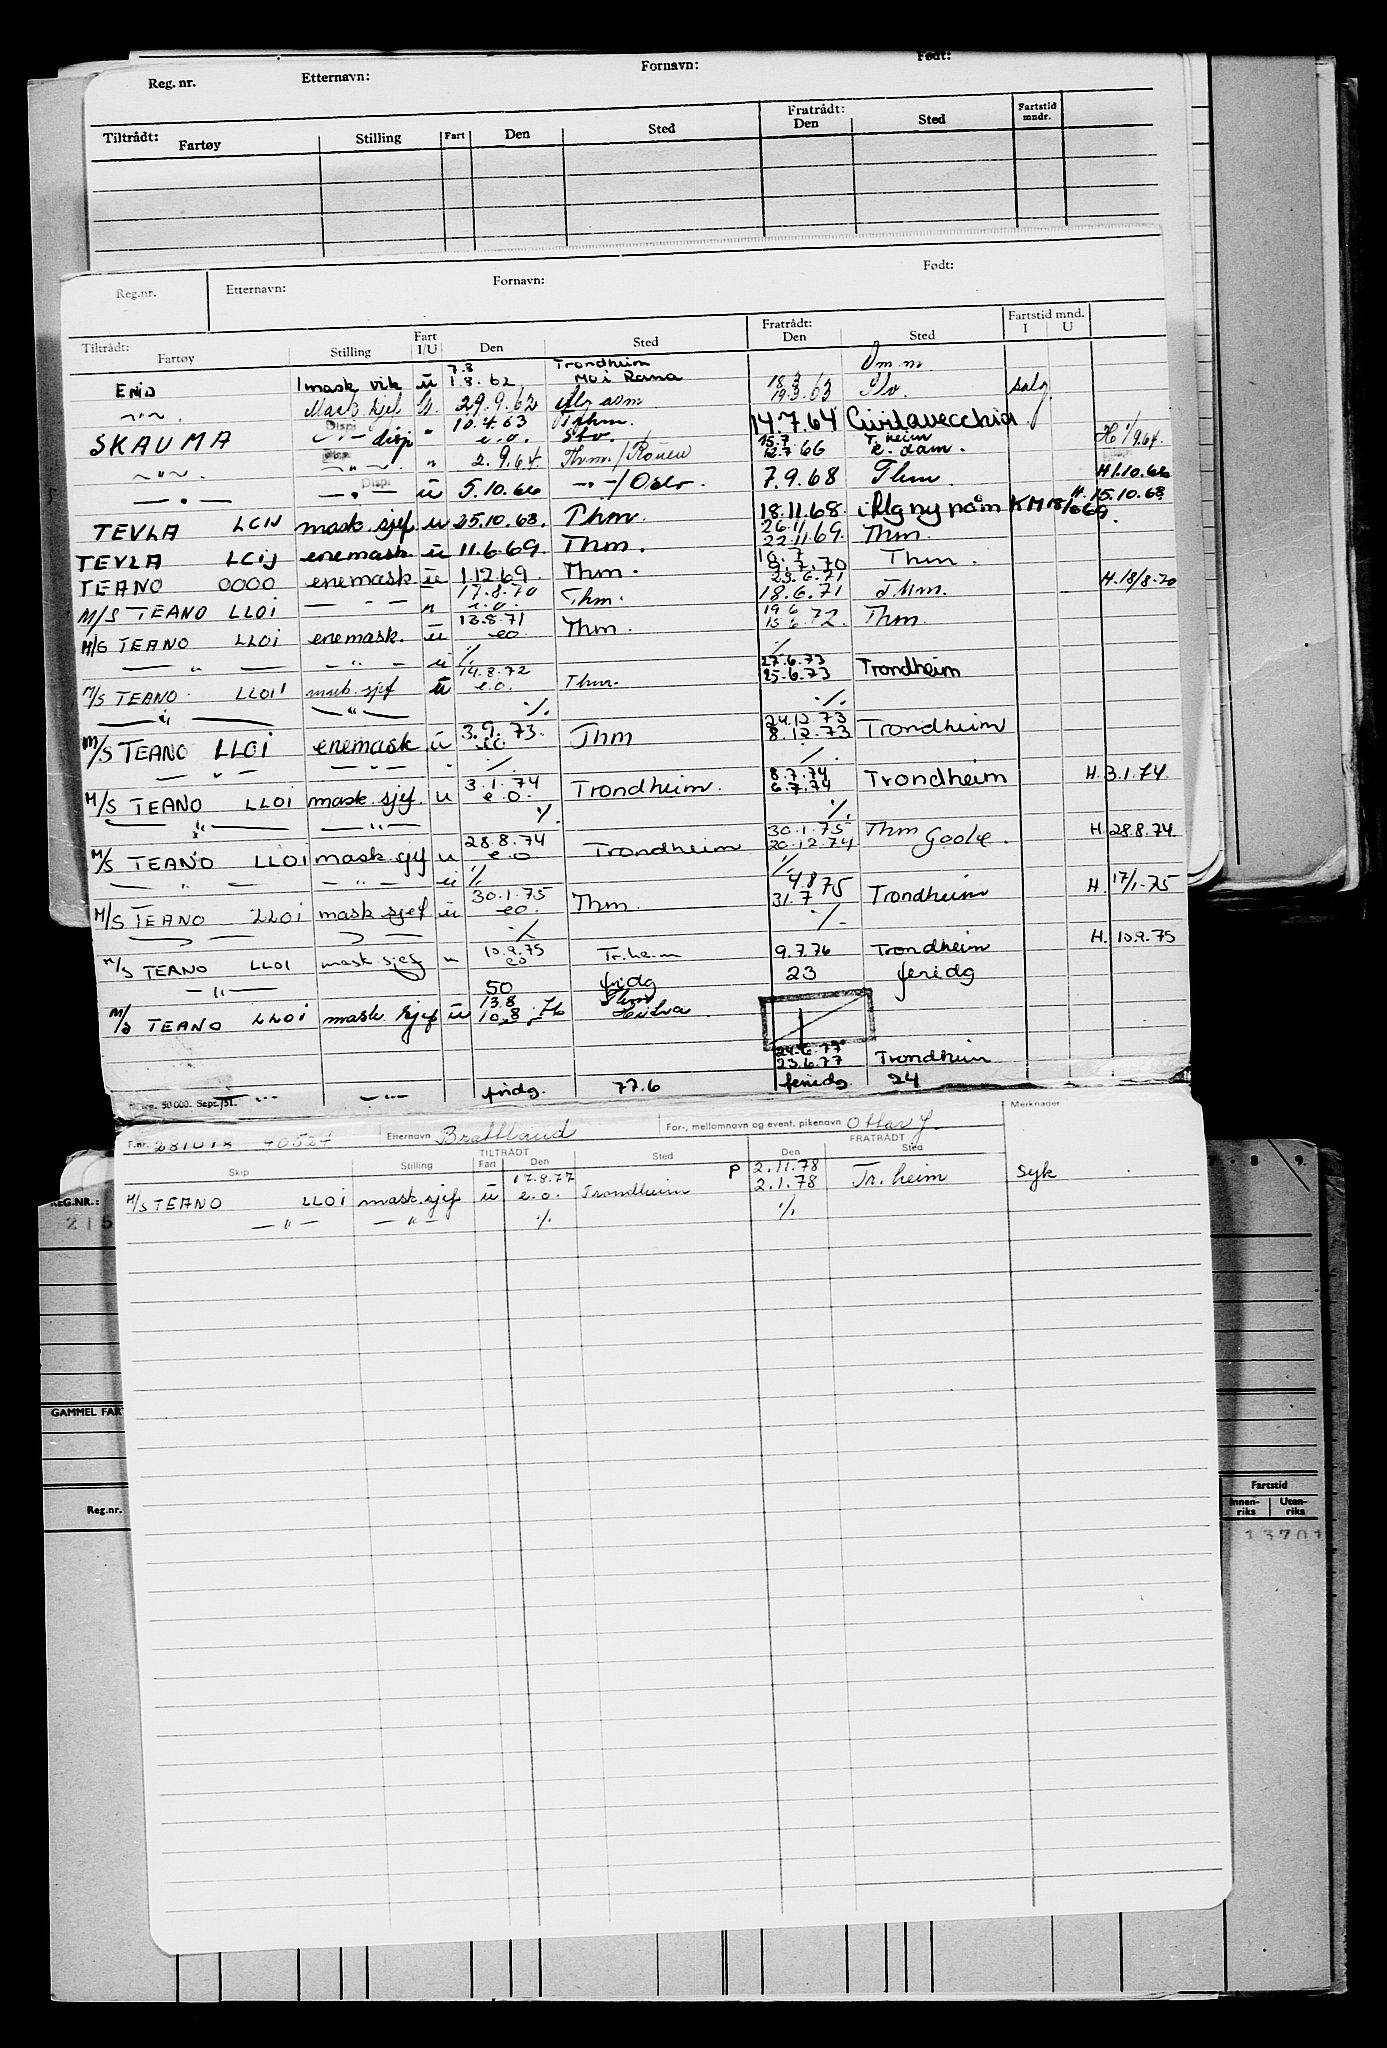 Reg. nr. Etternavn: Fornavn: Født:
Tiltrådt: Fratrådt: Fartstid mndr.
Fartøy Stilling Fart Den Sted Den Sted
Reg.nr. Etternavn: Fornavn: Født:
Tiltrådt: Fart Fratrådt: Fartstid mnd.
Fartøy Stilling I/U Den Sted Den Sted I U
7.8 Trondheim
ENID 1 mask vik ü 1.8.62 Mo i Rana 18.3
— " — Mask sjef 29.9.62 19.3.63 salg
SKAUMA Dispi 10.4.63 Thm. 14.7.64 Civitavecchia
— " — disp " e.o. Stv 15.7 T.heim H 1/9.64
— " — — " — " 2.9.64 Thm./Rouen 12.7.66 R.dam.
— " — Dispi — " — ü 5.10.66 — " — / Oslo. 7.9.68 Thm H 1.10.66
TEVLA LCIJ mask sjef ü 25.10.68. Thm. 18.11.68 i Alg ny nåm KM 18/6 69. H. 15.10.68
26.11
TEVLA LCIJ enemask ü 11.6.69. Thm. 22.11.69. Thm.
10.7
TEANO 0000 enemask ü 1.12.69. Thm. 9.7.70 Thm.
17.8.70 23.6.71
M/S TEANO LLOI — " — " e.o. Thm. 18.6.71 Thm. H. 18/8-70
13.8.71 19.6
M/S TEANO LLOI enemask. ü eo Thm. 15.6.72. Thm.
— " — — " — ü ./. ./.
14.8.72 27.6.73
M/S TEANO LLOI mask. sjef ü e.o. Thm. 25.6.73 Trondheim
— " — — " — ./. ./.
3.9.73. 24.12.73
M/S TEANO LLOI enemask ü eo Thm 8.12.73 Trondheim
— " — — " — " ./. ./.
3.1.74 8.7.74
M/S TEANO LLOI mask. sjef. ü e.o. Trondheim. 6.7.74 Trondheim H. 3.1.74.
— " — — " — ./. ./.
28.8.74 30.1.75 Thm
M/S TEANO LLOI mask sjef ü e.o. Trondheim 20.12.74 Goole. H. 28.8.74.
— " — — " — ü ./. ./.
30.1.75 4.8.75
M/S TEANO LLOI mask sjef ü eo. Thm. 31.7 Trondheim H. 17/1-75
— " — — " — ./. ./.
10.9.75
M/S TEANO LLOI mask sjef " eo Tr.heim 9.7.76 Trondheim H. 10.9.75
— " — 50 fridg 23 feridg
13.8 Thm
M/S TEANO LLOI mask. sjef ü 10.8.76 Huelva.
24.6.77
23.6.77 Trondheim
— " — — " — fridg. 77.6 feriedg. 24
50 000. Sept./51.
F.nr. 281018 40524 Etternavn Brattland For-, mellomnavn og event. pikenavn Ottar J. Merknader
TILTRÅDT FRATRÅDT
Skip Stilling Fart Den Sted Den Sted
17.8.77 P 2.11.78
M/S TEANO LLOI mask.sjef ü e.o. Trondheim 2.1.78 Tr.heim Syk
— " — — " — ./. ./.
REG.NR.: 8 9.
215
GAMMEL FAR
Reg.nr. Fartstid
Innen-riks Uten-riks
13701